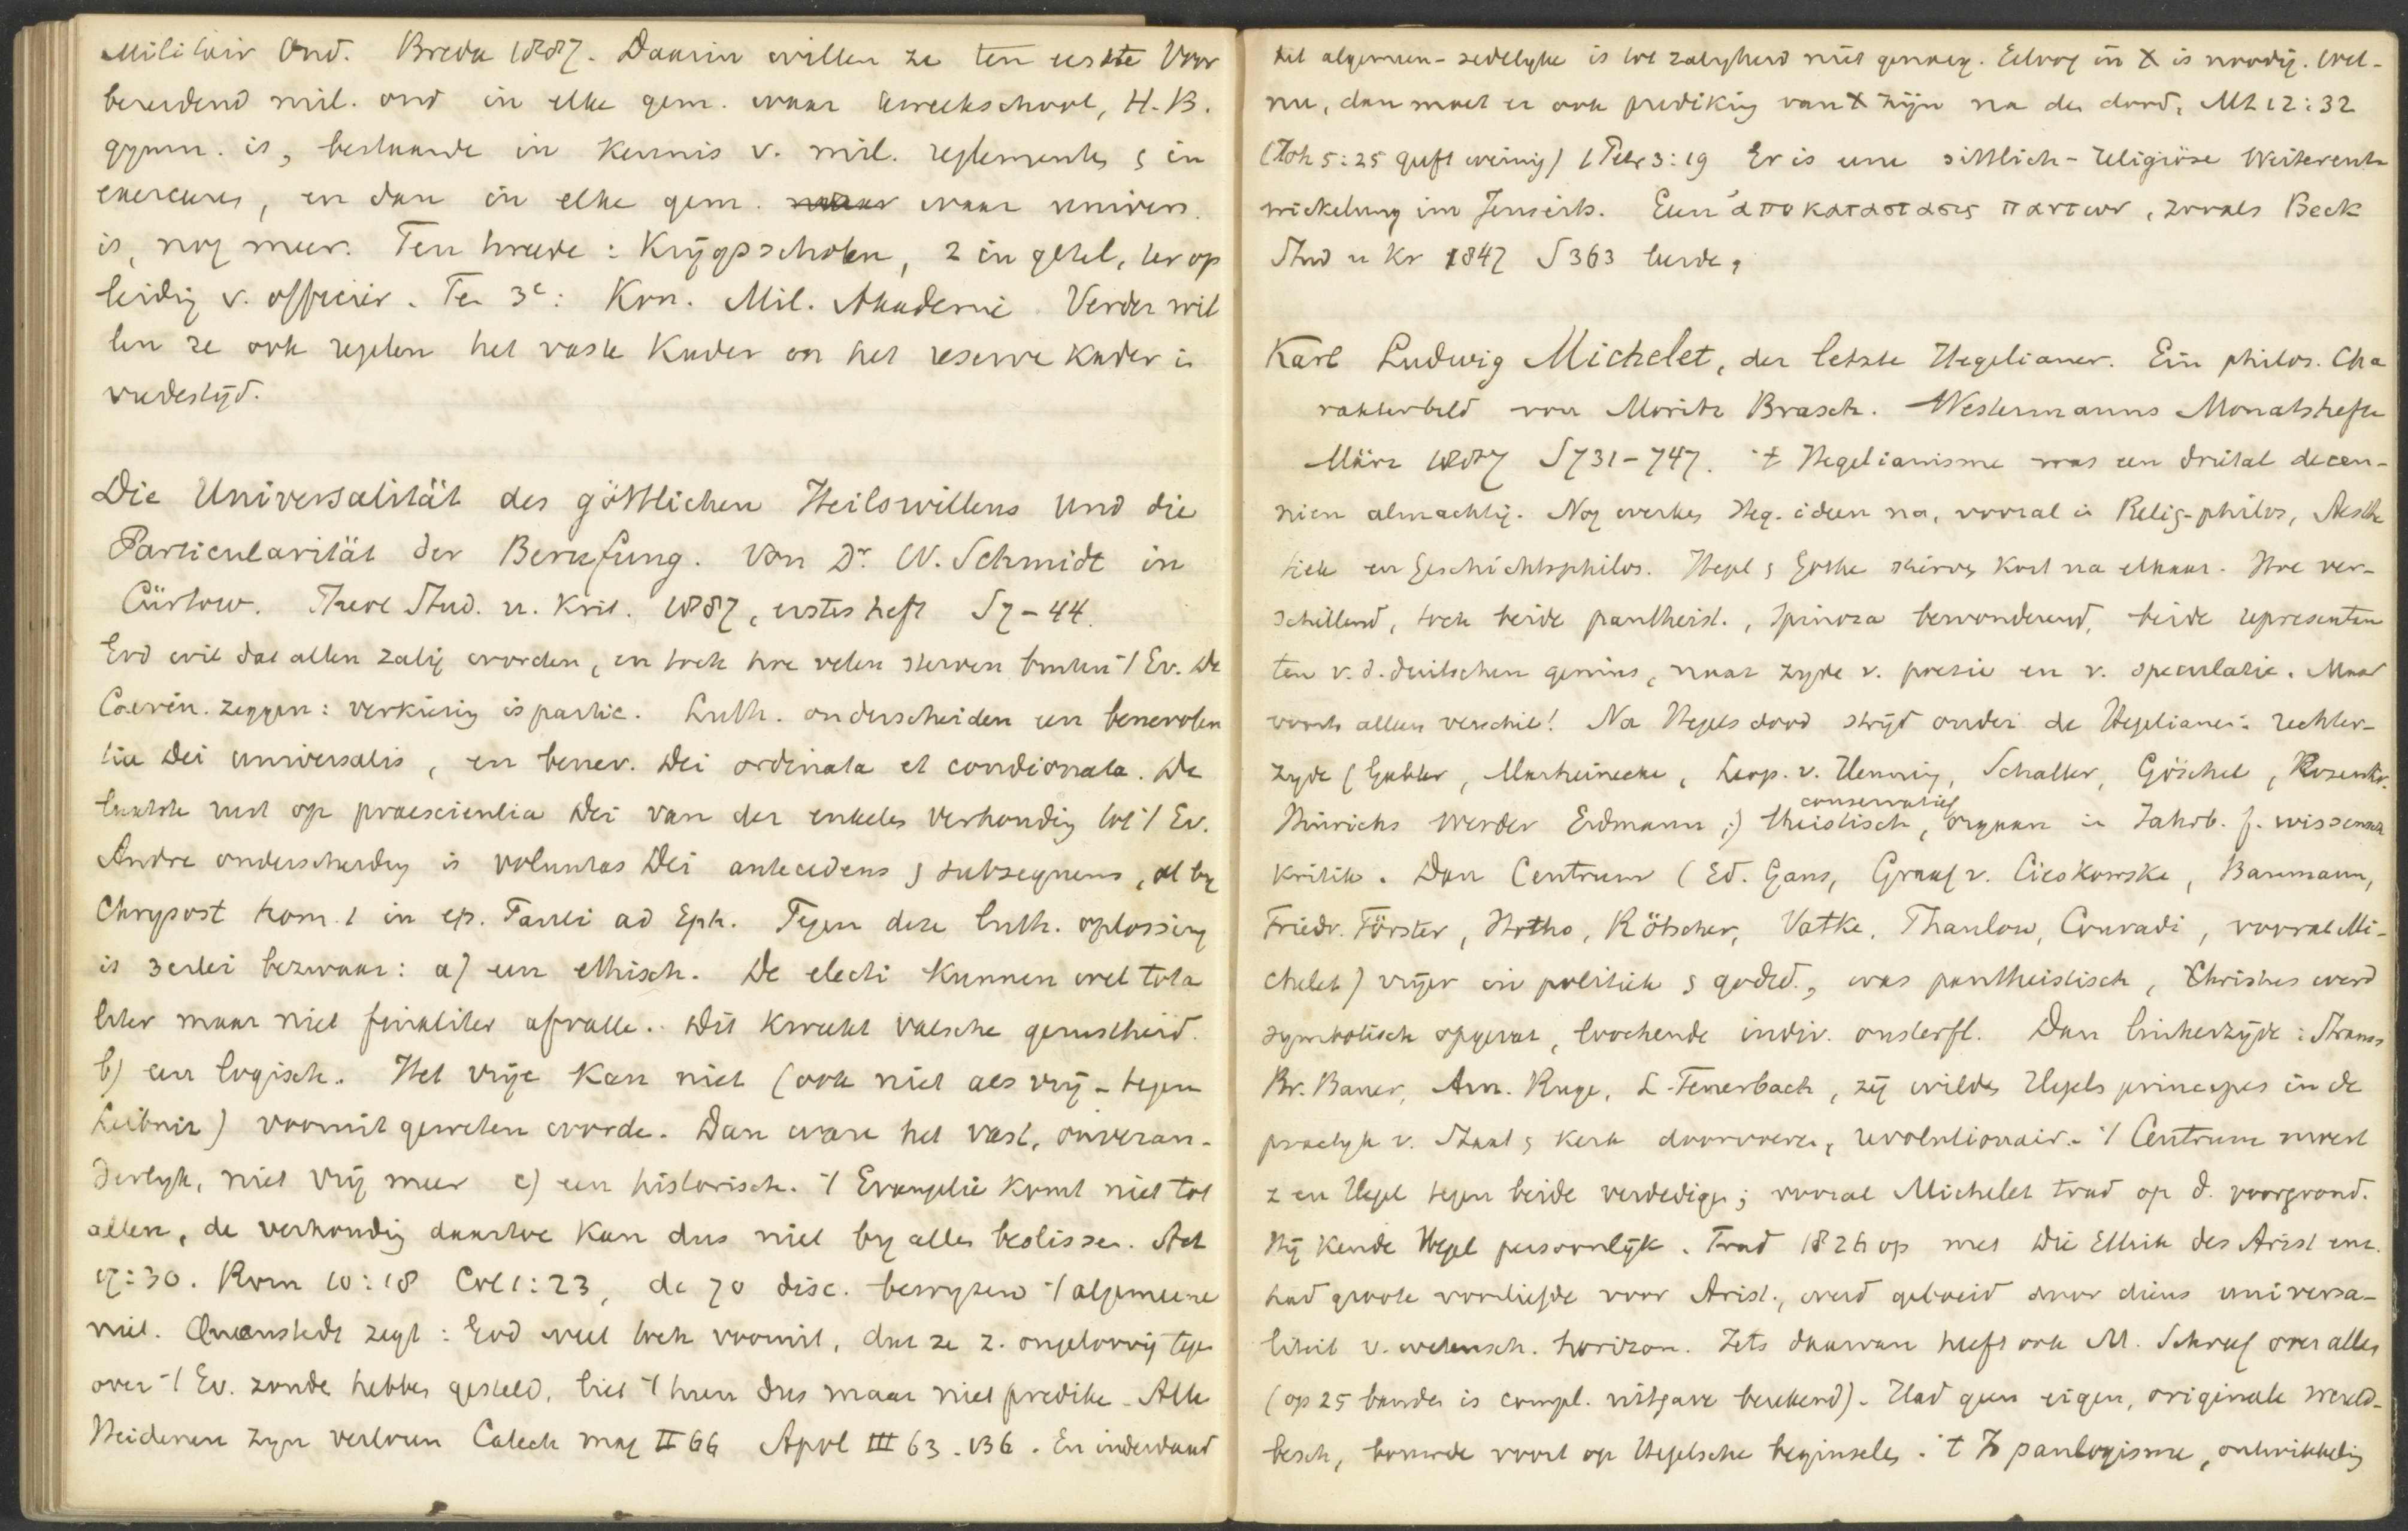 Militair Ond. Breda 1887. Daarin willen ze ten eerste Voor
bereidend mil. ond in elke gem. waar kweekschool, H.B.
gymn. is, bestaande in kennis v. mil. reglementen & in
exercures, en dan in elke gem. waar univers.
is, nog meer. Ten tweede: Krijgsscholen, 2 in getal, ter op
leidig v. officier. Ten 3e: Kon. Mil. Akademie. Verder wil
len ze ook regelen het vaste Kader en het reserve Kader in
vredestijd.
Die Universalität des göttlichen Heilswillens und die
Particularität der Berufung. Von Dr. W. Schmidt in
Cürtow. Theol Stud. u. Krit. 1887, erstes heft S 7-44.
God wil dat allen zalig worden, en toch hoe velen sterven buiten 't Ev. De
Calvin. zeggen: verkiezig is partic. Luth. onderscheiden een benevolen
tia Dei universalis, en benev. Dei ordinata et condionata. De
laatste rust op praescientia Dei van der enkeles verhoudig tot 't Ev.
Andre onderscheidig is voluntas Dei antecedens & subsequens, al by
Chrysost hom. 1 in ep. Pauli ad Eph. Tegen deze luth. oplossing
is 3erlei bezwaar: a) een ethisch. De electi kunnen wel tota
liter maar niet finaliter afvalle. Dit kweekt valsche gerustheid.
b) een logisch. Het vrije kan niet (ook niet als vrij - tegen
Leibniz) vooruit geweten worde. Dan ware het vast, onveran-
derlyk, niet vrij meer c) een historisch. 't Evangelie komt niet tot
allen, de verhoudig daartoe kan dus niet by alles beslissen. Act
17:30. Rom 10:18 Col 1:23, de 70 disc. bewyzen 't algemeene
niet. Quenstedt zegt: God weet toch vooruit, dat ze z. ongelovig tege
over 't Ev. zoude hebbes gesteld, liet 't hun dus maar niet predike. Alle
Heidenen zyn verloren Catech maj II 66 Apol III 63. 136. En inderdaad
het algemeen-zedelyke is tot zaligheid niet genoeg. Geloof in X is noodig. Wel-
nu, dan moet er ook predikig van X zijn na den dood, Mt 12:32
(Joh 5:25 geeft weinig) 1 Petr 3:19 Er is eene sittlich-religiöse Weiterent-
wickelung im Jenseits. Geen ἀποκαταστασις παντων, zooals Beck
Stud u Kr 1847 S 363 leerde,
Karl Ludwig Michelet, der letzte Hegelianer. Ein philos. Cha
rakterbild von Moritz Brasch. Westermanns Monatshefte
März 1887 S 731-747. 't Hegelianisme was een drietal decen-
niën almachtig. Nog werkes Heg. ideen na, vooral in Relig-philos, Aesthe
tiek en Geschichtsphilos. Hegel & Göthe stierves kort na elkaar. Hoe ver-
schillend, toch beide pantheist., Spinoza bewonderend, beide representen
ten v. d. duitschen genius, naar zyde v. poezie en v. speculatie. Maar
voorts alleen verschil! Na Hegels dood strijd onder de Hegelianer: rechter-
zyde (Gabler, Marheinecke, Leop. v. Henning, Schaller, Göschel, Rosenkr.
Hinrichs Werder Erdmann;) theistisch, conservatief orgaan in Jahrb. f. wissensch
Kritik. Dan Centrum (Ed. Gans, Graaf v. Cieskowske, Baumann,
Friedr. Förster, Hotho, Rötscher, Vatke, Thaulow, Conradi, vooral Mi-
chelet) vrijer in politiek & godsd., was pantheistisch, Christus werd
symbolisch opgevat, loochende indiv. onsterfl. Dan linkerzijde: Strauss
Br. Bauer, Arn. Ruge, L. Feuerbach, zij wildes Hegels principes in de
practyk v. Staat & Kerk doorvoeren, revolutionair. 't Centrum moest
z en Hegel tegen beide verdedigen; vooral Michelet trad op d. voorgrond.
Hij kende Hegel persoonlijk. Trad 1826 op met Die Ethik des Arist enz.
had groote voorliefde voor Arist., werd geboeid door diens universa-
liteit v. wetensch. horizon. Iets daarvan heeft ook M. Schreef over alles
(op 25 banden is compl. uitgave berekend). Had geen eigen, originele wereld-
besch, bouwde voort op Hegelsche beginseles. 't panlogisme, ontwikkelig